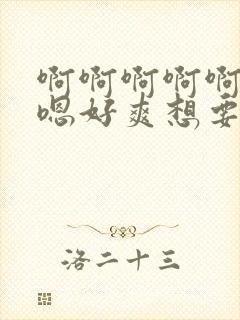 啊啊啊啊啊
嗯好爽想要
洛二十三